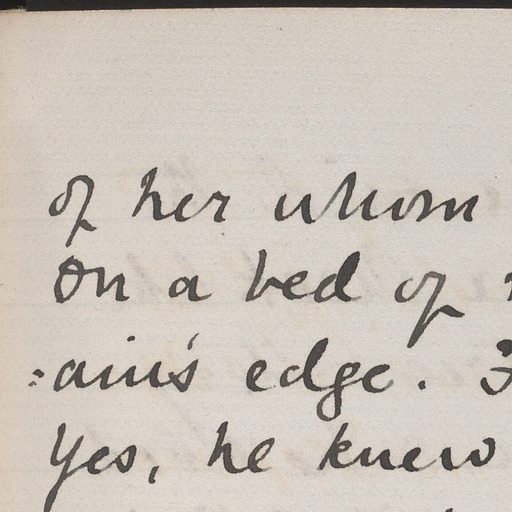 of her whom
On a bed of
:ain's edge.
Yes, he knew